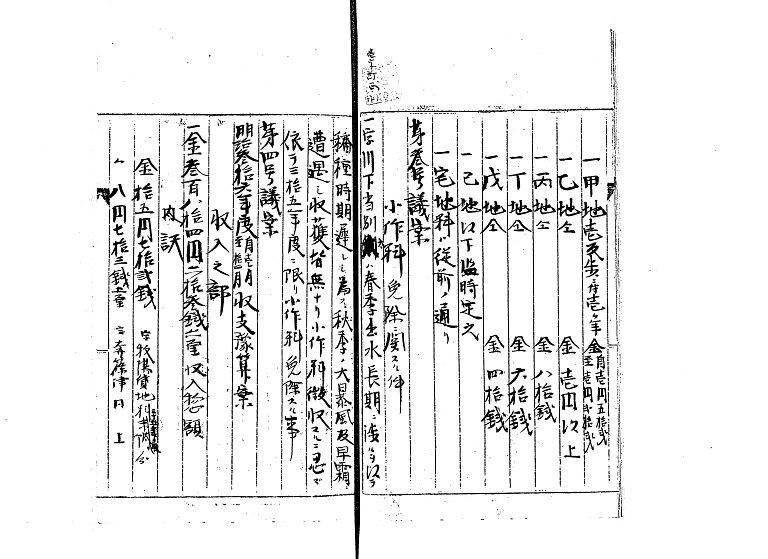 一甲地壱反歩ニ付壱ヶ年金 自壱円五拾銭 至壱円弐拾銭
一乙地仝 金壱円以上
一丙地仝 金八拾銭
一丁地仝 金六拾銭
一戊地仝 金四拾銭
一己地以下臨時定之
一宅地料ハ従前ノ通リ
第参号議案
小作料免除ニ関スル件
一字川下当別 ハ春季出水長期ニ渉リ以テ
播種時期遅レ為メ秋季ノ大暴風及早霜
遭遇シ収獲皆無ナリ小作料徴収スルニ忍ビ
依テ三拾五年度ニ限リ小作料免除スル事
第四号議案
明治参拾六年度 収支予算案
収入之部
一金参百八拾四円二拾参銭五厘収入総額
内訳
金拾五円七拾弐銭
〃八円七拾三銭五厘